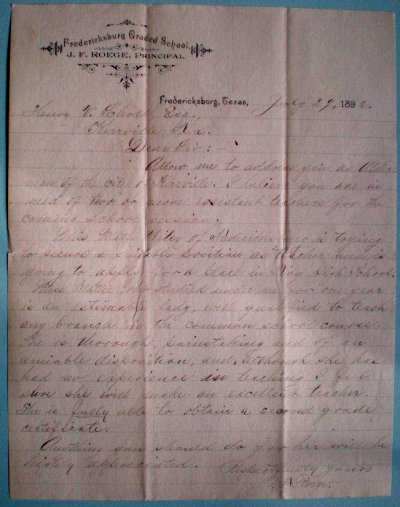 Fredericksburg Graded School,
J. F. ROEGE, PRINCIPAL
Fredericksburg, Texas, July 29, 1892.
Henry V. Esq.
Kerrville, Tex.
Dear Sir: —
Allow me to address you as Alder
man of the city of Kerrville. I you are in
need of two or more assistant teachers for the
coming school session.
Miss of Fredericksburg is trying
to secure a position as teacher and is
going to apply for a place in High School.
Miss who studied under me for one year
is an estimable lady, well qualified to teach
any branch in the common school course.
She is thorough, painstaking and of an
amiable disposition, and, although she has
had no experience in teaching I feel
sure she will make an excellent teacher.
She is fully able to obtain a second grade
certificate.
Anything you should do for her will be
highly appreciated.
yours